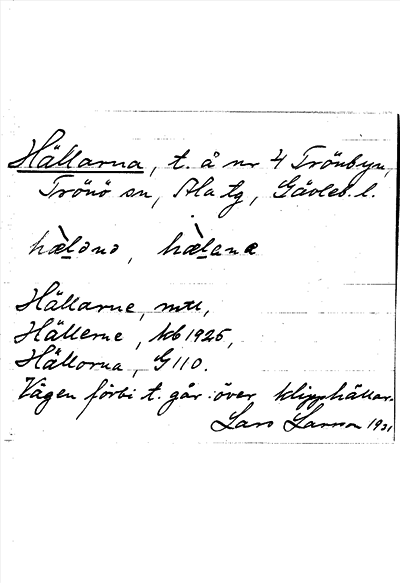 Hällarna, t. å nr 4 Trönbyn,
Trönö sn, Ala tg, Gävleb. l.
hæ̀lənə, hæ̀lanæ
Hällarne, mtl,
Hällerne, kb 1925,
Hällorna, G 110.
Vägen förbi t. går över klipphällar.
Lars Larson 1931